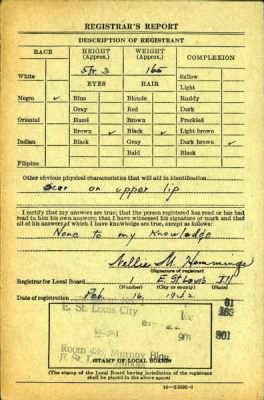 REGISTRAR'S REPORT
DESCRIPTION OF REGISTRANT
RACE HEIGHT (Approx.) WEIGHT (Approx.) COMPLEXION
5 ft 3 165
White Sallow
EYES HAIR Light
Negro ✓ Blue Blonde Ruddy
Gray Red Dark
Oriental Hazel Brown Freckled
Brown ✓ Black ✓ Light brown
Indian Black Gray Dark brown ✓
Bald Black
Filipino
Other obvious physical characteristics that will aid in identification
Scar on upper lip
I certify that my answers are true; that the person registered has read or has had
read to him his own answers; that I have witnessed his signature or mark and that
all of his answers of which I have knowledge are true, except as follows:
None to my knowledge
Nellie M. Hemmings
(Signature of registrar)
Registrar for Local Board E. St. Louis Ill
(Number) (City or county)
Date of registration Feb. 16, 1942
E. St. Louis City
61
163
801
Room
Murphy Bldg.
(STAMP OF LOCAL BOARD)
(The stamp of the Local Board having jurisdiction of the registrant
shall be placed in the above space)